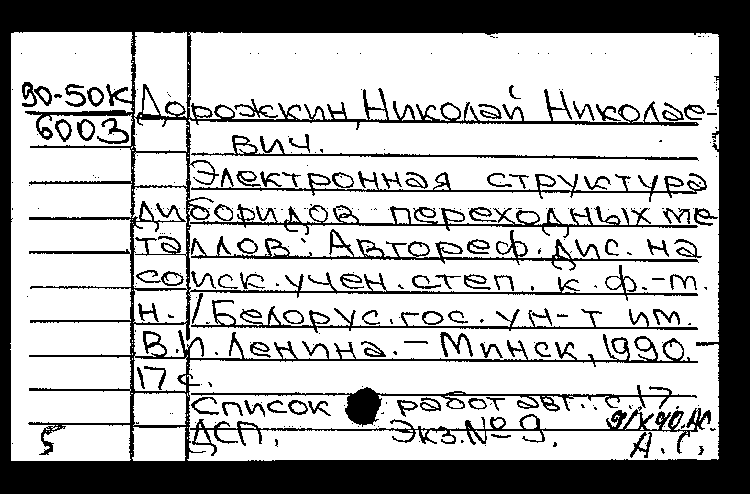 90-50К Дорожкин, Николай Николае-
6003 вич.
Электронная структура
диборидов переходных ме
таллов: Автореф. дис. на
соиск. учен. степ. к. ф.-м.
н. / Белорус. гос. ун-т им.
В.И. Ленина. - Минск, 1990. -
17 с.
Список работ авт.: с. 17.
5 ДСП. Экз. № 9. А.С.